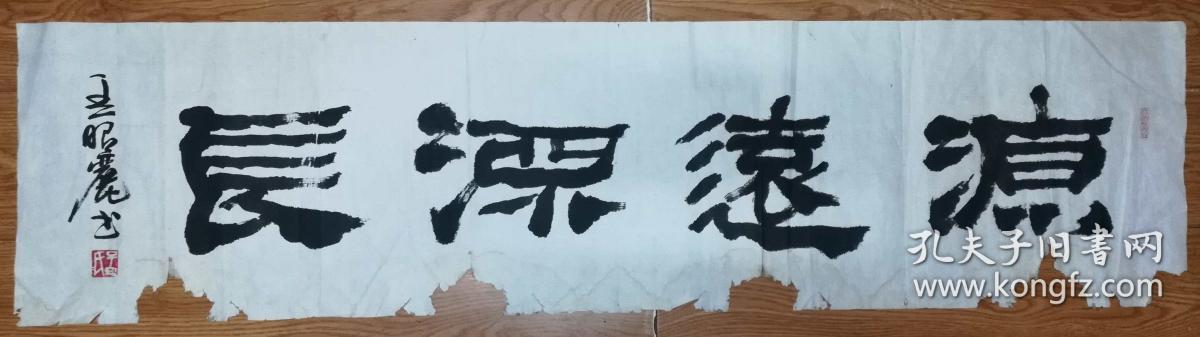 源遠深長
王昭麗书
孔夫子旧书网
www.kongfz.com